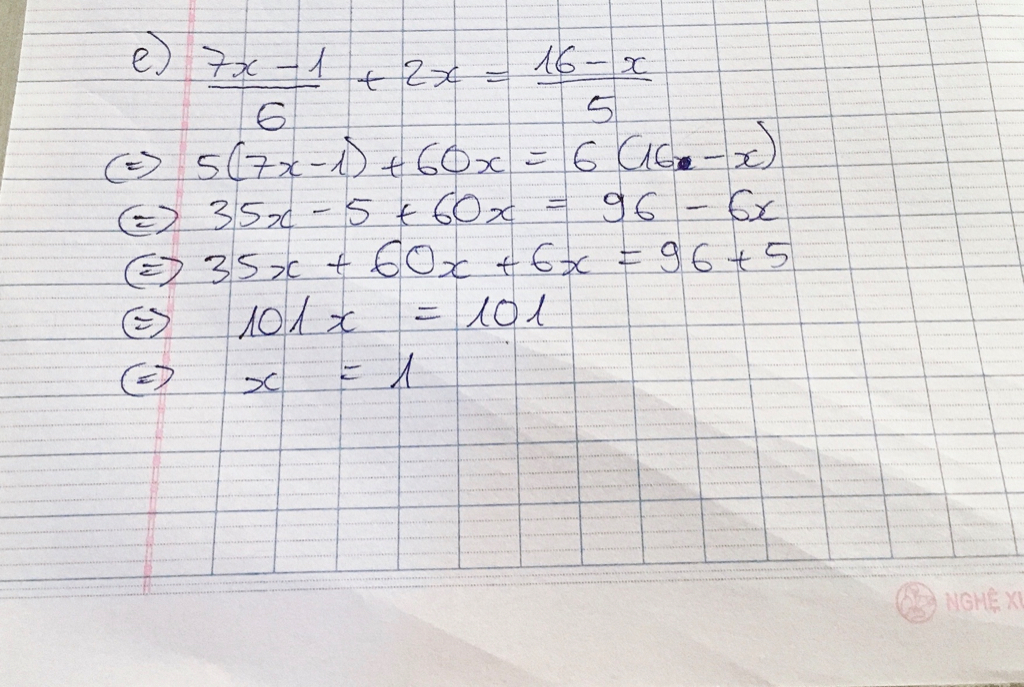 e) (7x - 1)/6 + 2x = (16 - x)/5
(=) 5(7x - 1) + 60x = 6(16 - x)
(=) 35x - 5 + 60x = 96 - 6x
(=) 35x + 60x + 6x = 96 + 5
(=) 101x = 101
(=) x = 1
NGHỆ